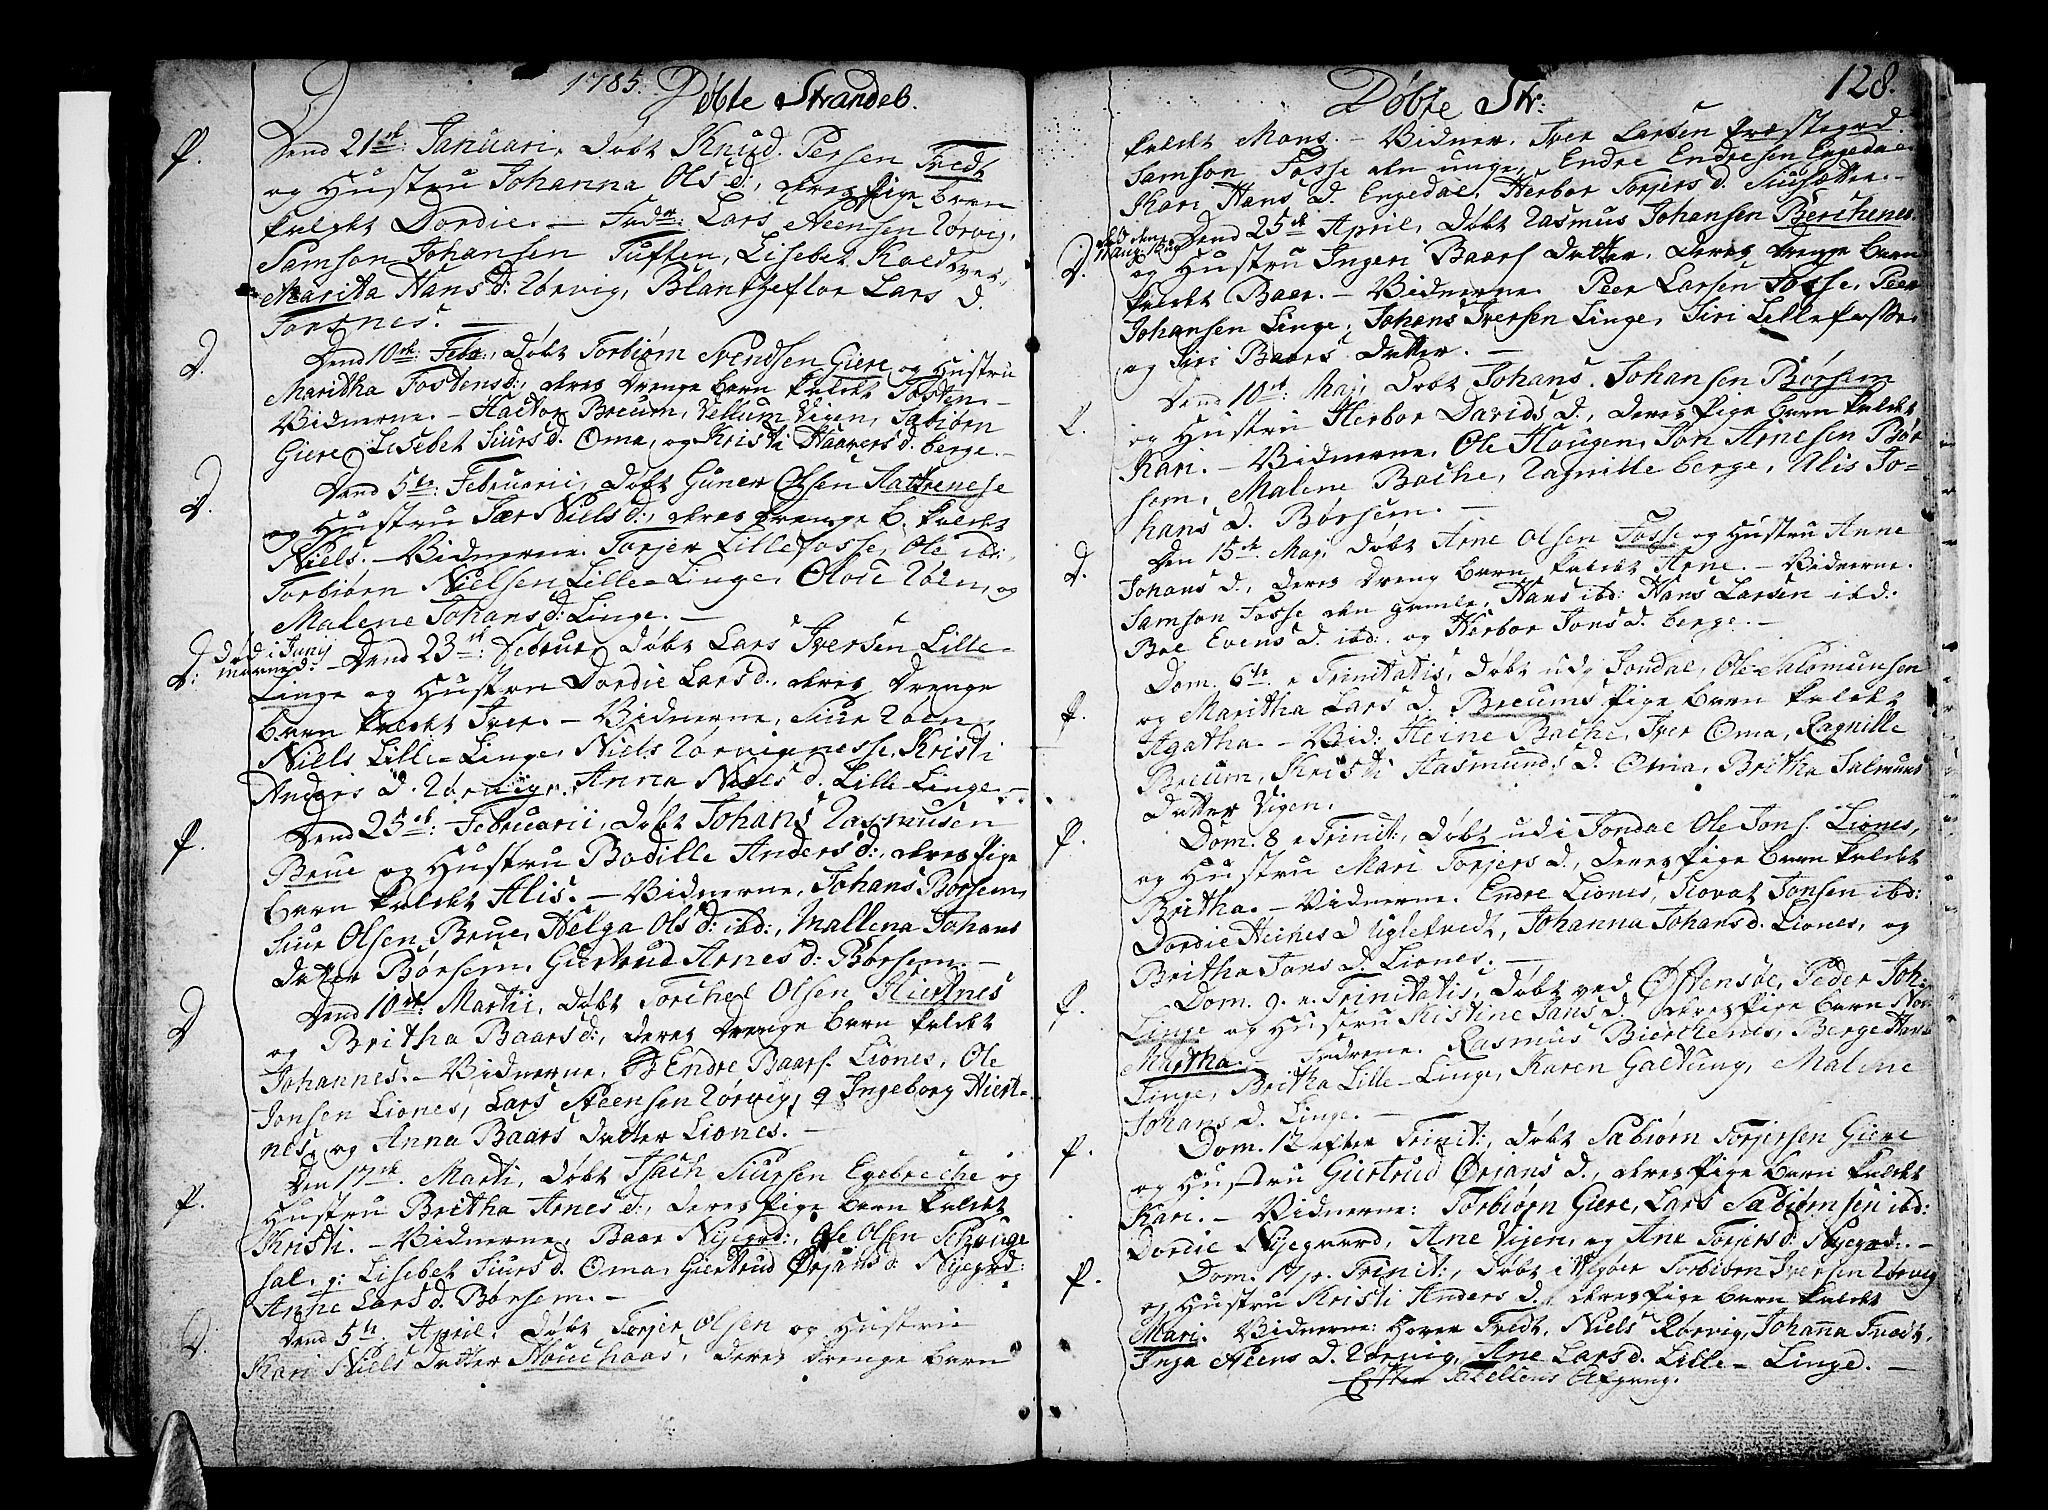 1785. Døbte Strandeb.
P. Dend 21de: Januarii, Døbt Knud Persen Tredt
og Hustru Johanna Ols d:, deres Pige Barn
kaldet Dordie. — Fadr: Lars Steensen Rørvig,
Samson Johansen Tuften, Lisebet Koldtvet,
Marita Hans d: Rørvig, Blantzeflor Lars d.
Torsnes. —
D. Dend 10de: Febr:, Døbt Torbiørn Svendsen Giere og Hustru
Maritha Tostens d:, deres Drenge Barn kaldet Tosten. —
Vidnerne. — Hactor Breum, Vellum Vigen, Sabiørn
Giere, Lisebet Siurs d. Oma, og Kristi Haavers d. Berge. —
D. Dend 5te: Februarii, Døbt Guner Olsen Hattrenese
og Hustru Jær Niels d:, deres Drenge B. kaldet
Niels. — Vidnerne. Torjer Lillefosse, Ole ibd:,
Torbiørn Nielsen Lille-Linge, Olove Røen, og
Malene Johans d: Linge. —
D: død i Junij Maaned. — Dend 23de: Februar, Døbt Lars Iversen Lille-
Linge og Hustru Dordie Lars d., deres Drenge
Barn kaldet Iver. — Vidnerne, Siur Røen,
Niels Lille-Linge, Niels Rørvignesse, Kristi
Anders d. Rørvig, Anna Niels d. Lille-Linge. —
P. Dend 25de: Februarii, Døbt Johans Rasmusen
Brue og Hustru Bodille Anders d:, deres Pige
Barn kaldet Alis. — Vidnerne, Johans Børsem,
Siur Olsen Brue, Helga Ols d: ibd:, Mallena Johans
Datter Børsem, Giertrud Arnes d: Børsem. —
D Dend 10de: Martii, Døbt Torchel Olsen Hiertnes
og Britha Baars d:, deres Drenge Barn kaldet
Johannes. — Vidnerne, Endre Baars. Liones, Ole
Jonsen Liones, Lars Steensen Rørvig, q Ingeborg Hiert-
nes, og Anna Baars Datter Liones. —
P. Den 17de. Marti, Døbt Isach Siursen Egebreche og
Hustru Britha Arnes d:, deres Pige Barn kaldet
Kristi. — Vidnerne. Baar Nijegrd:, Ole Olsen
sal. q: Lisebet Siurs d. Oma, Giertrud Ørjans d: Nijegrd:
Anne Lars d. Børsem. —
D. Dend 5te April, Døbt Torjer Olsen og Hustru
Kari Niels Datter Houchaas, deres Drenge Barn
Døbte Str: 128.
kaldet Mons. — Vidner. Iver Larsen Præstegrd.
Samson Fosse den unge, Endre Endresen Engedal
Kari Hans d. Engedal, Herbor Torjers d.
D. Dend 25de April, Døbt Rasmus Johansen Berchenes.
og Hustru Ingeri Baars Datter, Deres Drenge Barn
kaldet Baar. — Vidnerne. Peer Larsen Fosse, Peer
Johansen Linge, Johans Iversen Linge, Siri Lillefosse,
og Siri Baars Datter. —
P. Dend 10de: Maji Døbt Johans. Johansen Børsem
og Hustru Herbor Davids d., deres Pige Barn kaldet
Kari. — Vidnerne, Ole Hougen, Jon Arnesen Bør
sem, Malene Bache, Ragnille Berge, Alis Jo-
hans d. Børsem. —
D. Den 15de. Maji Døbt Arne Olsen Fosse og Hustru Anne
Johans d., deres Dreng Barn kaldet Arne. — Vidnerne.
Samson Fosse den gamle, Hans ibd: Hans Larsen ibd:
Boe Evens d. ibd:. og Herbor Jons d. Berge. —
P. Dom. 6te e Trinitatis, Døbt udj Jondal, Ole Salomunsen
og Maritha Lars d. Breums Pige Barn kaldet
Agatha. — Vid: Heine Bache, Iver Oma, Ragnille
Breum, Kristi Aasmunds d. Oma, Britha Salmuns
Datter Vigen.
P. Dom. 8 e Trinit:, Døbt udi Jondal Ole Jons. Liones,
og Hustru Mari Torjers d., deres Pige Barn kaldet
Britha. — Vidnerne. Endre Liones, Siovat Jonsen ibd:
Dordie Heines d Uglekvedt, Johanna Johans d. Liones, og
Britha Jans d. Liones. —
P. Dom. 9. e. Trinitatis, Døbt ved Østensøe, Peder Joh.
Linge og Hustru Kristine Jans d. deres Pige Barn Nav.
Martha. — Fadrene. Rasmus Bierchenes, Berge Hans
Linge, Britha Lille-Linge, Karen Galtung, Malene
Johans d. Linge. —
P. Dom. 12 efter Trinit:, Døbt Sabiørn Torjersen Giere
og Hustru Giertrud Ørjans d., deres Pige Barn kaldet
Kari. — Vidnerne: Torbiørn Giere, Lars Sabiørnsen ibd:
Dordie Nijegaard, Ane Vigen, og Ane Torjers d. Nijegrd:. —
P. Dom. 17 p. Trinit:, Døbt i Torbiørn Iversen Rørvig
og Hustru Kristi Anders d., deres Pige Barn kaldet
Mari. Vidnerne: Tredt, Niels Rørvig, Johanna Tredt,
Inga Steens d. Rørvig, Ane Lars d. Lille-Linge. —
Efter Tabellens Afgang.